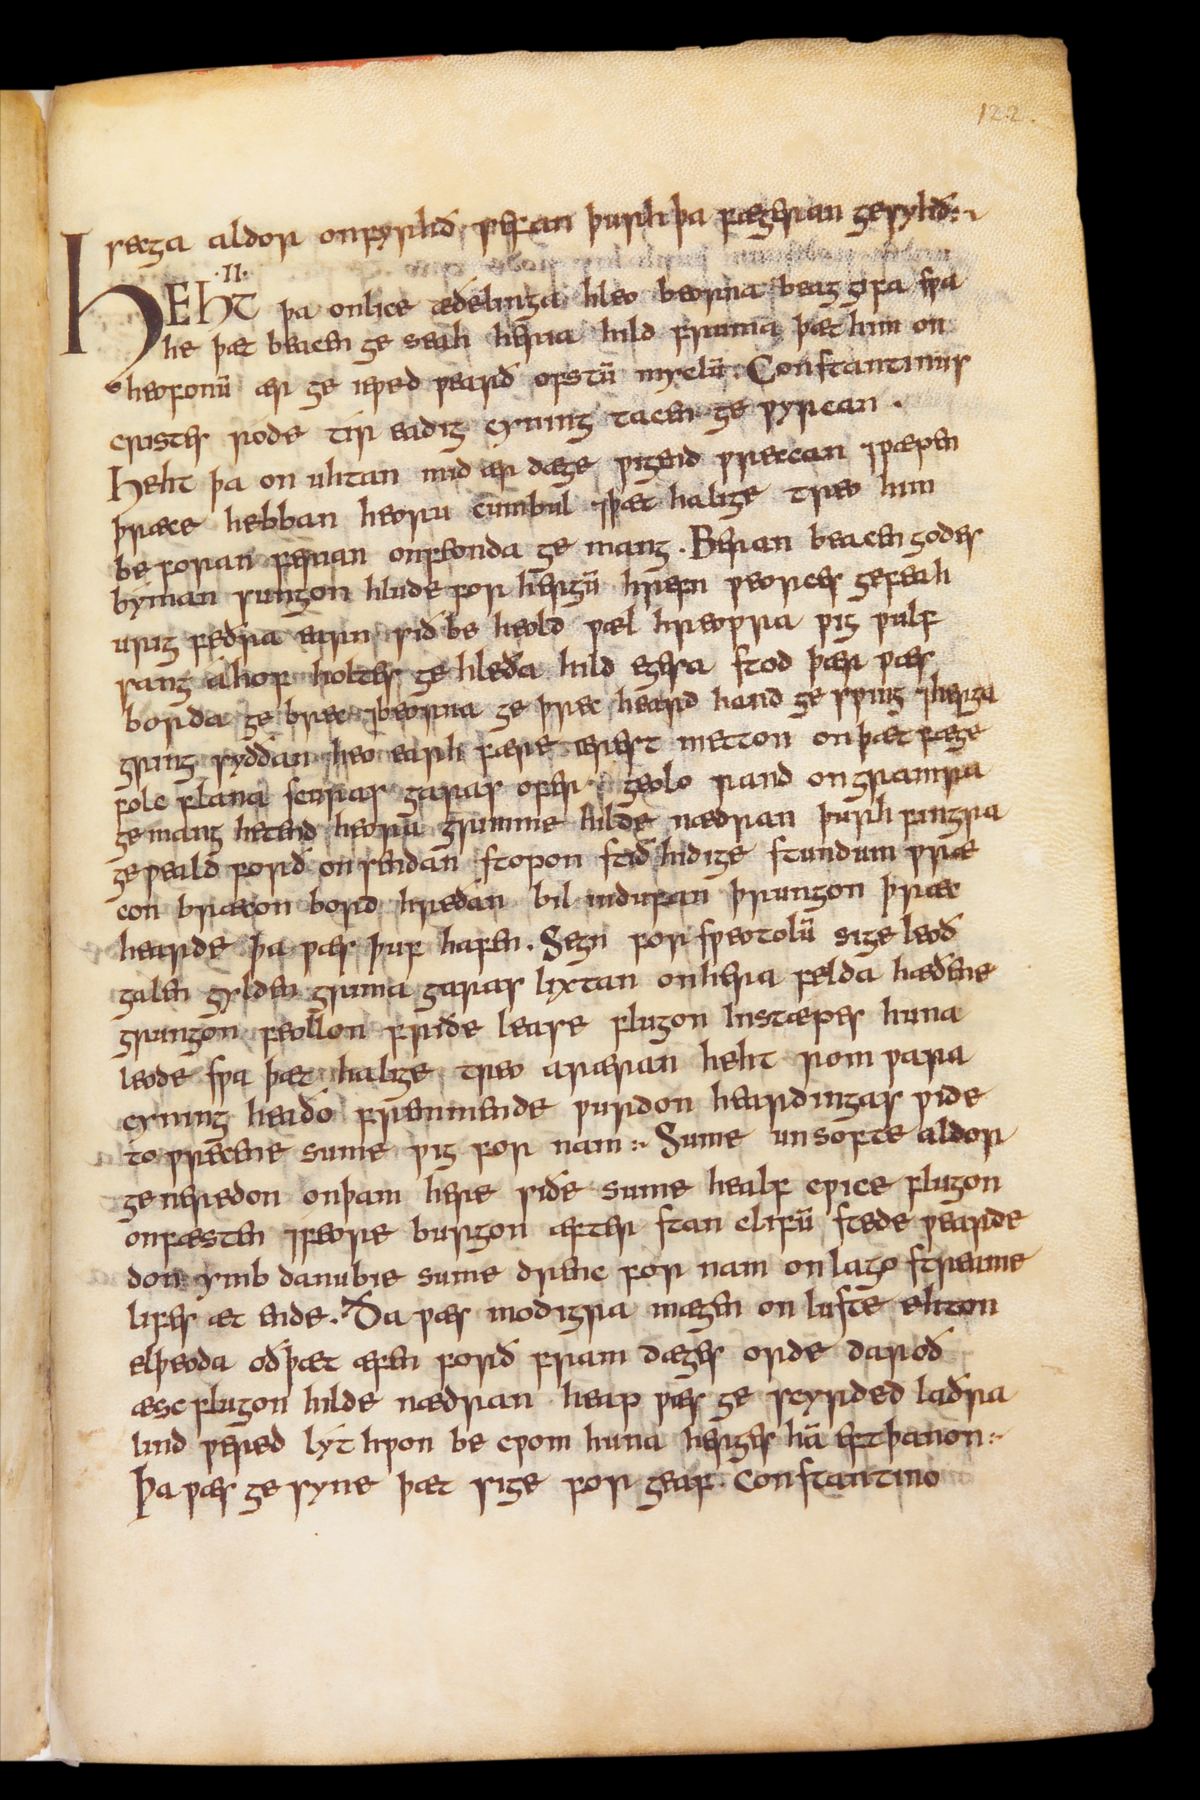 122.
secga aldor onfyrhð sefan þurh þa fægeran gesyhð:,
·II·
HEHT þa onlice æðelinga hleo beorna beag gifa swa
he þæt beacen ge seah heria hild fruma þæt him on
heofonū ær ge iewed wearð ofstū myclū. Constantinus
cristes rode tir eadig cyning tacen ge wyrcan.
Heht þa on uhtan mid ær dæge wigend wreccan ⁊wæpen
þræce hebban heoru cumbul ⁊þæt halige treo him
be foran ferian onfeonda ge mang. Beran beacen godes
byman sungon hlude for hergū hrefn weorces gefeah
urig feðra earn sið be heold wæl hreowra wig wulf
sang áhof holtes ge hleða hild egesa stod þær wæs
borda ge brec ⁊beorna ge þrec heard hand ge swing ⁊herga
gring syððan heo earh fære ærest metton on þæt fæge
folc flana scuras garas ofer geolo rand on gramra
ge mang hetend heoru grimme hilde nædran þurh fingra
geweald forð on sendan stopon stið hidige stundum wræ
con bræcon bord hreðan bil in dufan þrungon þræc
hearde þa wæs þuf hafen. Segn for sweotolū sige leoð
galen gylden grima garas lixtan on heria felda hæðene
grungon feollon friðe lease flugon Instæpes huna
leode swa þæt halige treo aræran heht rom wara
cyning heaðo fremmende wurdon heardingas wide
to wrecene sume wig for nam:, Sume un softe aldor
ge neredon onþam here siðe sume healf cwice flugon
onfæsten ⁊feore burgon æfter stan clifū stede wearde
don ymb danubie sume drenc for nam on lago streame
lifes æt ende. Ða wæs modigra mægen on luste ehton
elþeoda oð þæt æfen forð fram dæges orde daroð
æsc flugon hilde nædran heap wæs ge scyrded laðra
lind wered lyt hwon be cwom huna herges hā eft þanon:,
Þa wæs ge syne þæt sige for geaf. constantino